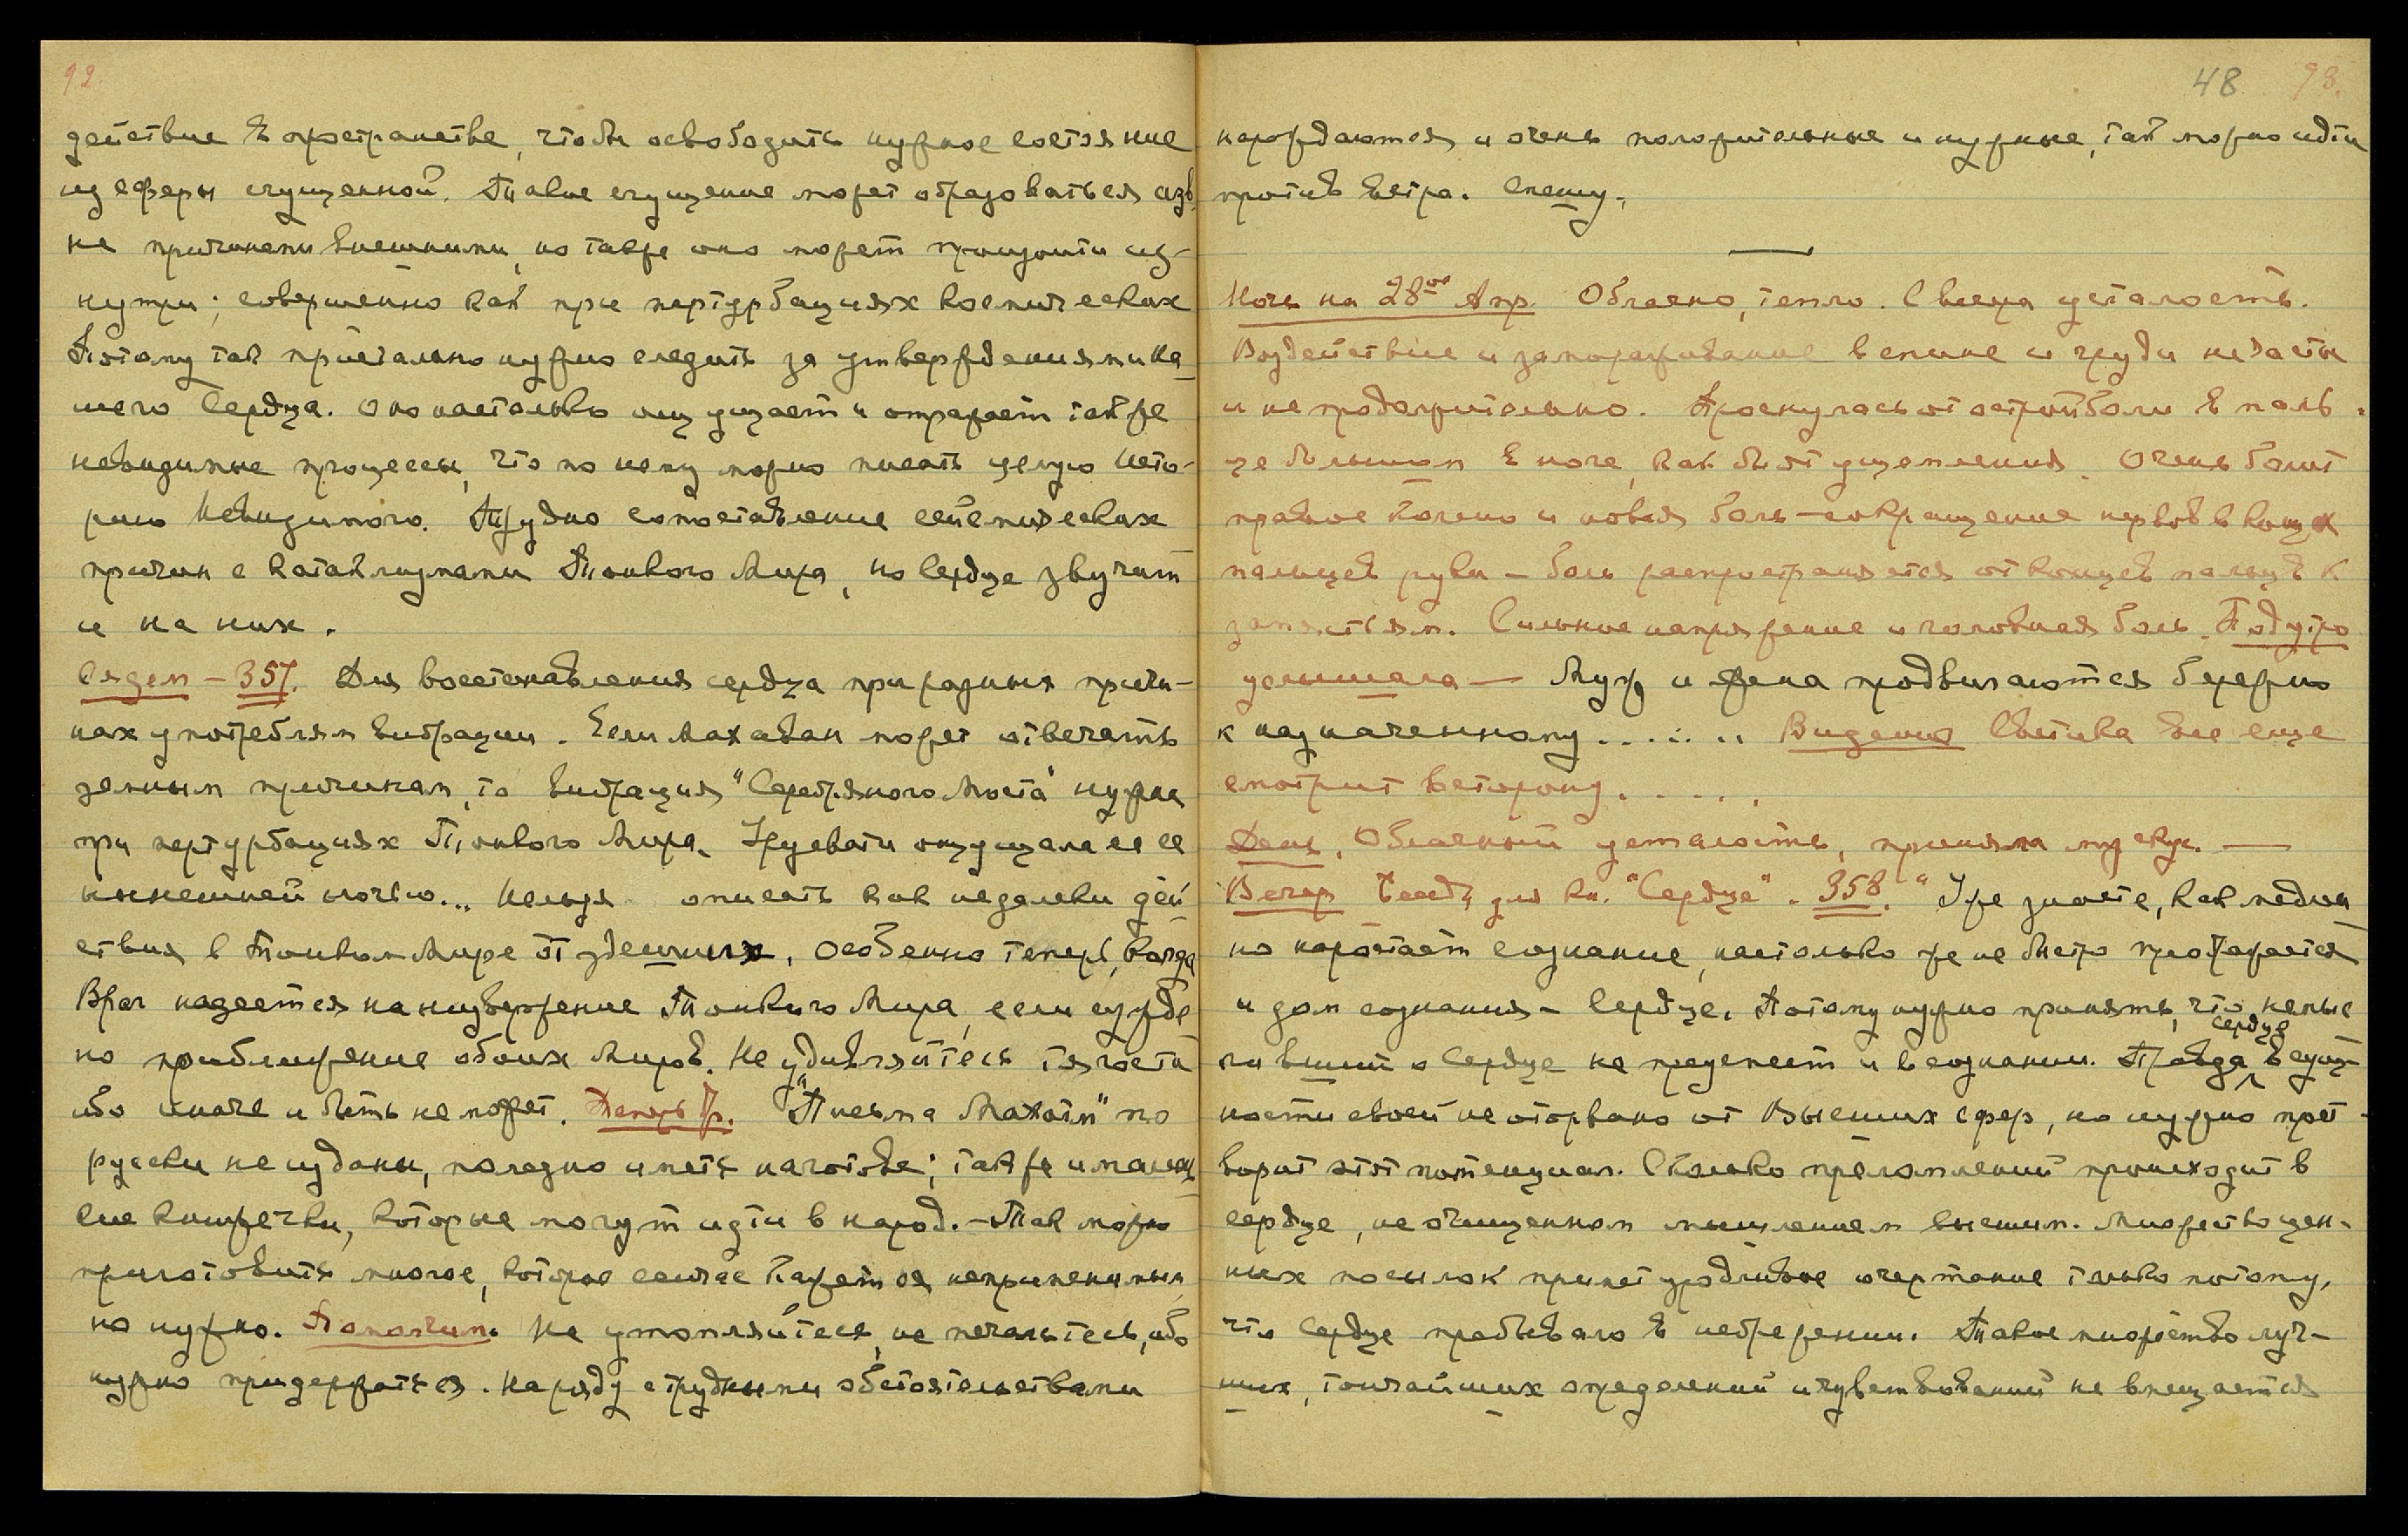 92.
действие в пространстве, чтобы освободить нужное состояние
из сферы сгущенной. Такие сгущение может образоваться изв-
не причинами внешними, но также оно может произойти из-
нутри; совершенно как при пертурбациях космических
Потому так пристально нужно следить за утверждениями на-
шего Сердца. Оно настолько ощущает и отражает также
невидимые процессы, что по нему можно писать целую Исто-
рию Невидимого. Трудно сопоставление сейсмических
причин с катаклизмами Тонкого Мира, но Сердце звучит
и на них.
Сядем – 357. Для восстановления сердца при разных причи-
нах употребляем вибрации. Если Махаван может отвечать
земным причинам, то вибрация "Серебряного Моста" нужна
при пертурбациях Тонкого Мира. Урусвати ощущала ее
нынешней ночью... Нельзя описать как недалеки дей-
ствия в Тонком Мире от здешних, особенно теперь, когда
Враг надеется на низвержение Тонкого Мира, если сужде-
но приближение обоих Миров. Не удивляйтесь тягости
ибо иначе и быть не может. Теперь Др. "Письма Махатм" по
русски не изданы, полезно иметь наготове; также и малень-
кие книжечки, которые могут идти в народ. – Так можно
приготовить многое, которое сейчас кажется неприменимым,
но нужно. Помолчим. Не утомляйтесь, не печальтесь, ибо
нужно придержаться. Наряду с трудными обстоятельствами
48 93.
нарождаются и очень положительные и нужные, так можно идти
против ветра. Спешу.
Ночь на 28ое Апр. Облачно, тепло. С вечера усталость.
Воздействие и замораживание в спине и груди не часты
и не продолжительно. Проснулась от острой боли в паль-
це большом в ноге, как бы от ущемления. Очень болит
правое колено и новая боль – сокращение нервов в концах
пальцев руки – боль распространяется от концев пальцев к
запястьям. Сильное напряжение и головная боль. Под утро
услышала – Муж и жена продвигаются бережно
к назначенному....... Видения Светика все еще
смотрит в сторону.....
День. Облачный усталость, приняла мускус. —
Вечер Беседа для кн. "Сердце". 358. "Уже знаете, как медлен-
но нарастает сознание, настолько же не быстро преображается
и дом сознания – Сердце. Потому нужно принять, что непыс
ливший о Сердце не преуспеет и в сознании. Правда, сердце в сущ-
ности своей не оторвано от Высших сфер, но нужно прет-
ворит этот потенциал. Сколько преломлений происходит в
сердце, не очищенном мышлением высшим. Множество цен-
ных посылок примет уродливое очертание только потому,
что Сердце пребывало в небрежении. Такое множество луч-
ших, тончайших определений и чувствований не вмещается